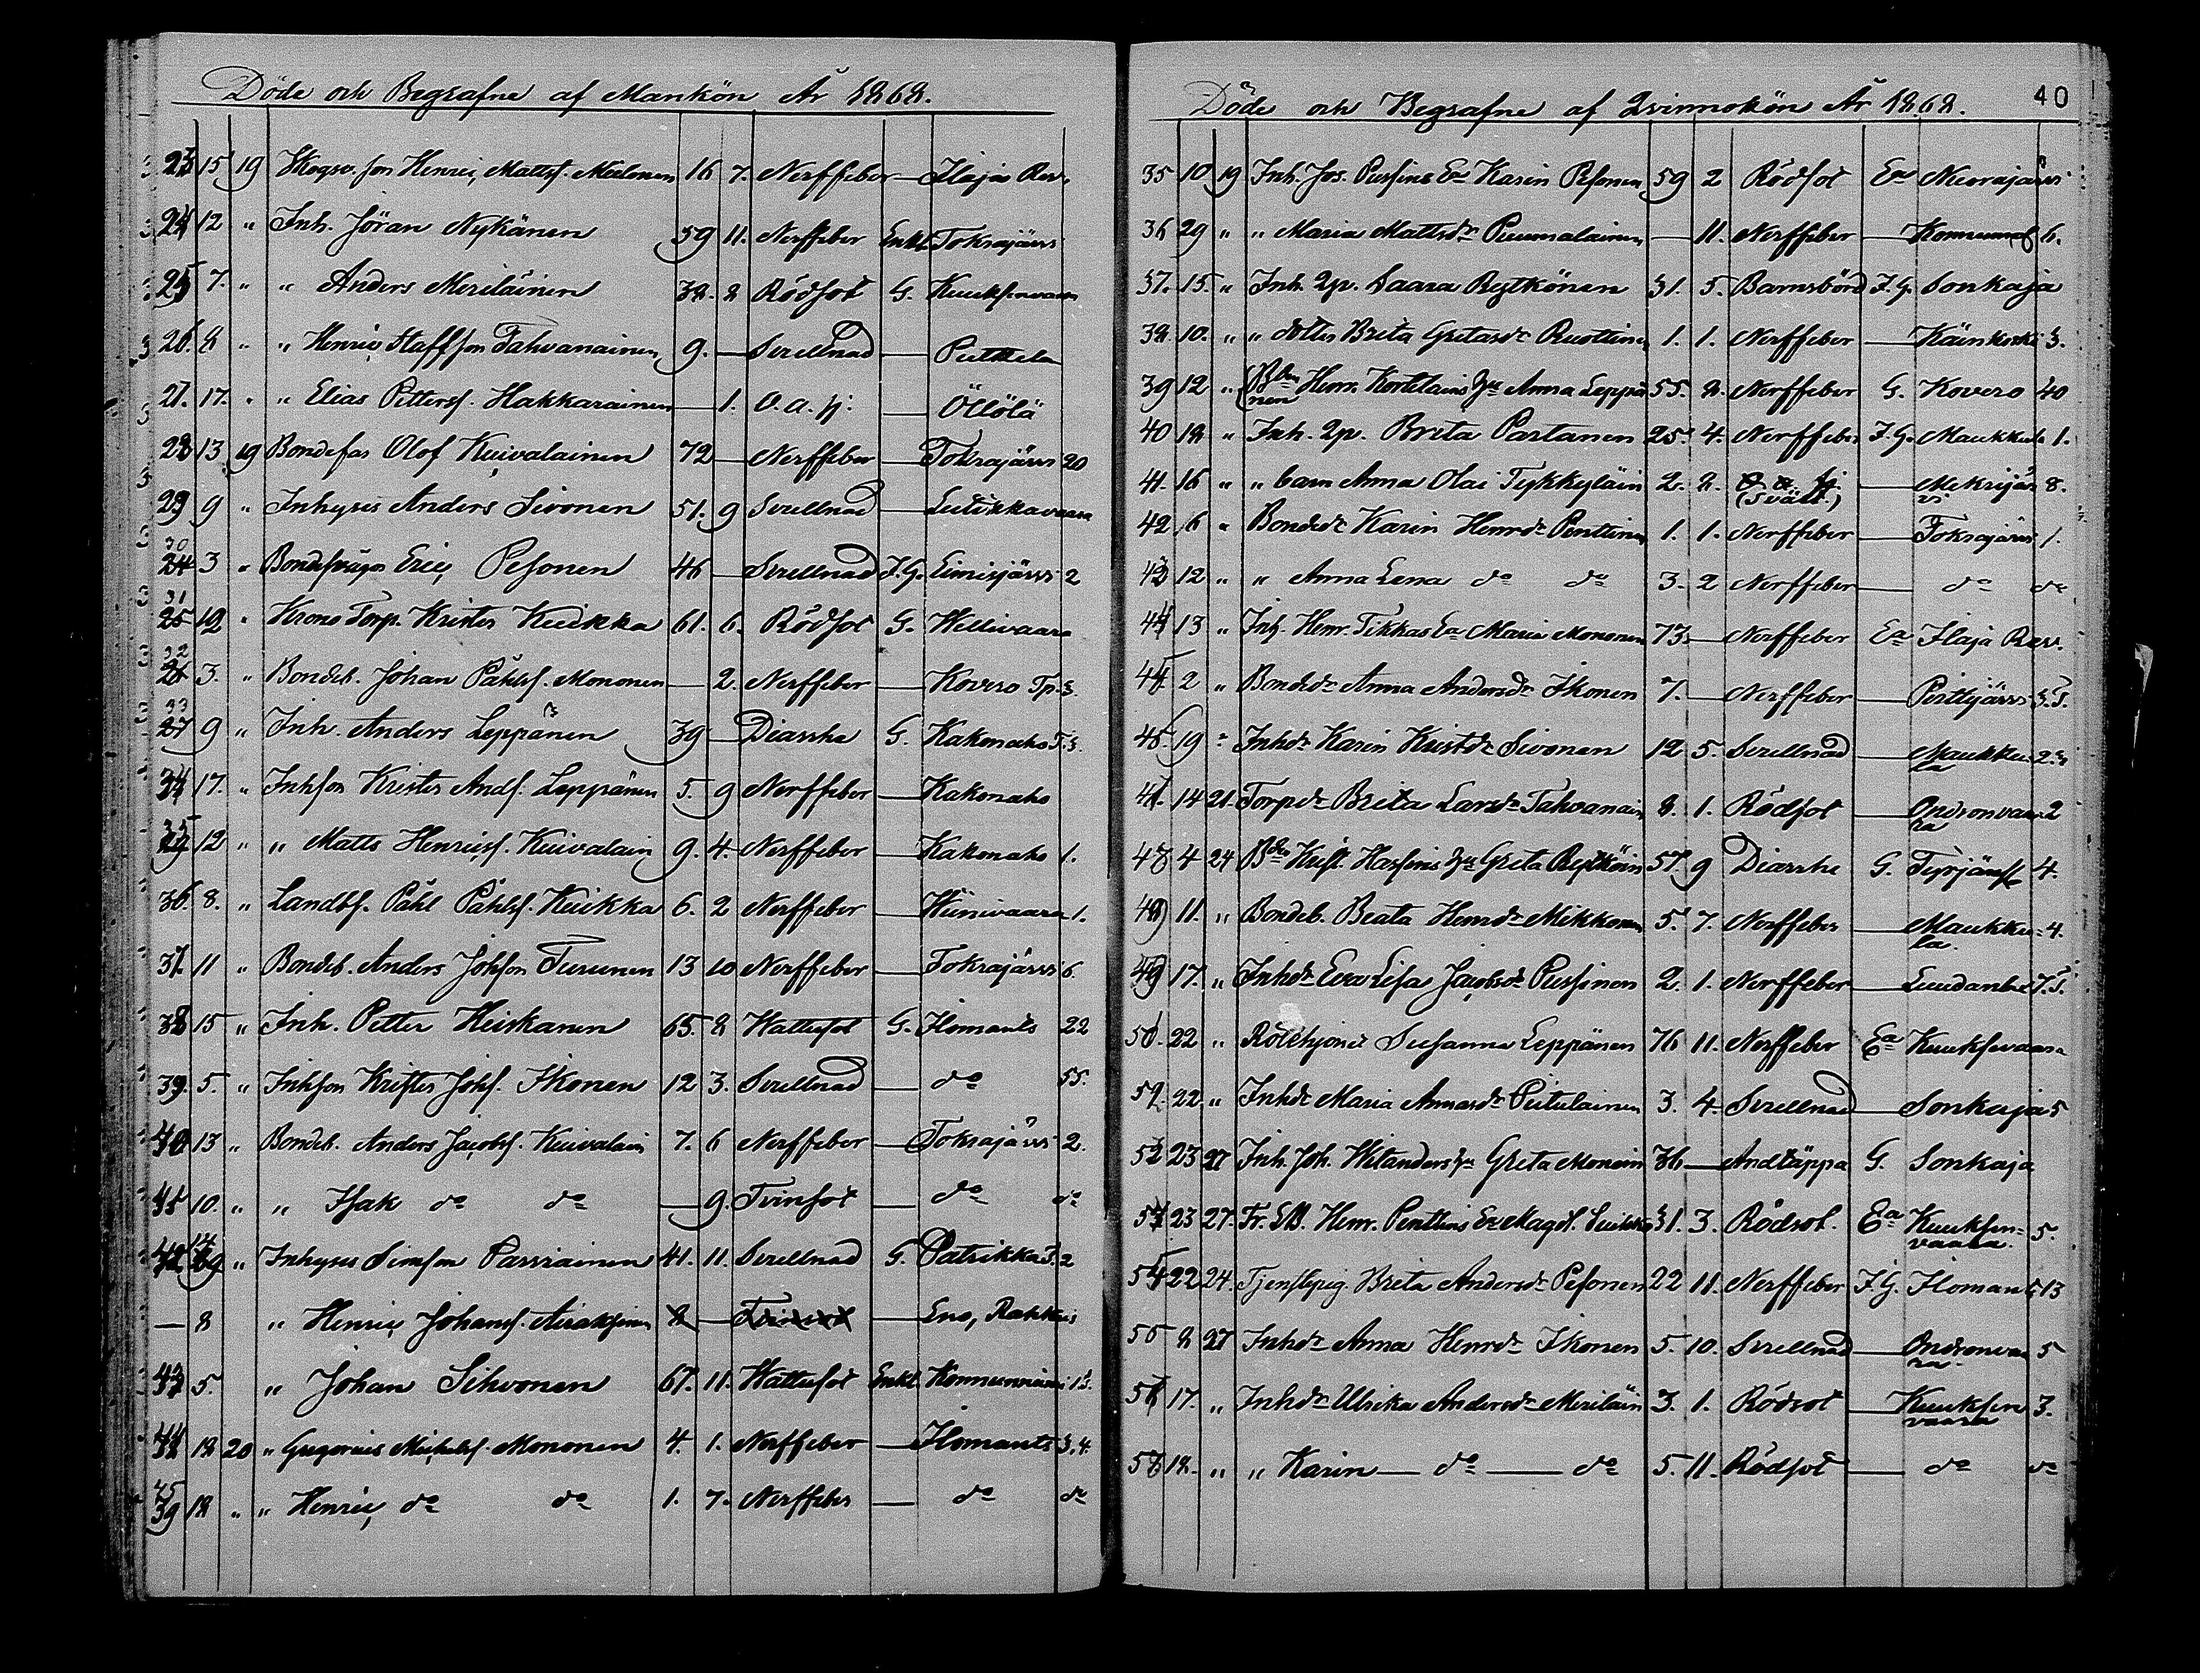 Döde och Begrafne af Mankön År 1868.
23 15 19 Skogsv. son Henric Mattss. Meelonen 16 7. Nerffeber — Ilaja Rev.
24 12 " Inh. Jöran Nykänen 59 11. Nerffeber Enkl. Tokrajärvi
25 7. " " Anders Meriläinen 38. 8 Rödsot G. Kuuksenvaara
26. 8 " " Henric Staffson Tahvanainen 9. — Serellnad — Putkela
27. 17. " " Elias Petterss. Hakkarainen — 1. O. a. sj. — Öllölä
28 13 19 Bondefar Olof Kuivalainen 72 — Nerffeber — Tokrajärvi 20
29 9 " Inhyses Anders Sivonen 51. 9 Serellnad — Lutikkavaara
30
24 3 " Bondesvåger Eric Pesonen 46 — Serellnad F. G. Liusjärvi 2
31
25 12 " Krono Torp. Krister Kuikka 61. 6. Rödsot G. Hullivaara
32
26 3. " Bondeb. Johan Påhlss. Mononen — 2. Nerffeber — Kovero Tp. 3.
33
27 9 " Inh. Anders Leppänen 39 — Diarrhe G. Kakonaho T. 3.
34 17. " Inhson Krister Ands. Leppänen 5. 9 Nerffeber — Kakonaho
35 12 " " Matts Henricss. Kuivalain 9. 4. Nerffeber — Kakonaho 1.
36. 8. " Landbs. Påhl Påhlss. Kuikka 6. 2 Nerffeber — Hunivaara 1.
37. 11 " Bondeb. Anders Johsson Turunen 13 10 Nerffeber — Tokrajärvi 6.
38 15 " Inh. Petter Heiskanen 65. 8 Wattusot G. Ilomants 22
39. 5. " Inhson Krister Johs. Ikonen 12 3. Serellnad — do 55.
40 13 " Bondeb. Anders Jacobss. Kuivalain 7. 6 Nerffeber — Tokrajärvi 2.
41 10. " " Isak do do — 9. Tvinsot — do do
14
42 " Inhyses Simson Parviainen 41. 11. Serellnad G. Patrikka T. 2
— 8 " Henric Johanss. Airaksinen 8 — Tvinsot — Eno, Rakkus
43 5. " Johan Sihvonen 67. 11. Wattusot Enkl. Konnunniemi 13.
44 18 20 " Gregorius Michelss. Mononen 4. 1. Nerffeber — Ilomants 3. 4.
45
39 18 " " Henric do do 1. 7. Nerffeber — do do
Döde och Begrafne af Qvinnokön År 1868. 40
35 10 19 Inh. Jos. Pussins Ea Karin Pesonen 59 2 Rödsot Ea Nuorajärvi
36 29 " " Maria Mattsdr Puumalainen — 11. Nerffeber — 6.
37. 15. " Inh. Qp. Saara Rytkönen 31. 5. Barnsbörd F. G. Sonkaja
38. 10. " " dotter Brita Gretasdr Ruottinen 1. 1. Nerffeber — Käinkoski 3.
39 12 " Bden Henr. Kortelains Hu Anna Leppä 55. 8. Nerffeber G. Kovero 40
nen
40 18 " Inh. Qp. Brita Partanen 25. 4. Nerffeber F. G. Maukkula 1.
41. 16 " " barn Anna Olai Tykkyläin 2. 2. O. a. sj. — Mekrijär 8.
(Svält.) vi
42 6 " Bondedr Karin Henrdr Penttinen 1. 1. Nerffeber — Tokrajärvi 1.
43 12 " " Anna Lena do do 3. 2 Nerffeber — do do
44 13 " Inh. Henr. Tikkas Ea Maria Mononen 73. — Nerffeber Ea Ilaja Rev.
45 2 " Bondedr Anna Andersdr Ikonen 7. — Nerffeber — Pirttijärvi 3. T.
46 19 " Inhdr Karin Kristdr Sivonen 12 5. Serellnad — Maukku 2.
la
47. 14 21. Torpdr Brita Larsdr Tahvanain 8. 1. Rödsot — Ondronvaa 2
ra
48 4 24 Bden Krist. Hassinis Hu Greta Rytköin 57. 9 Diarrhe G. Tyrjänsa 4.
49 11. " Bondeb. Beata Henrdr Mikkonen 5. 7. Nerffeber — Maukku= 4.
la.
49 17. " Inhdr Eva Lisa Jacobsdr Pussinen 2. 1. Nerffeber — 7. T.
50. 22 " Rotehjonet Susanna Leppänen 76 11. Nerffeber Ea Kuuksenvaara
51. 22. " Inhdr Maria Annasdr Piitulainen 3. 4. Serellnad — Sonkaja 5
52 23 27 Inh. Joh. Welanders Hu Greta Monoin 36 — Andtäppa G. Sonkaja
53 23 27. Fr. LB. Henr. Penttins Ea Magdl. 31. 3. Rödsot. Ea Kuuksen= 5.
vaara.
54 22 24. Tjenstepig. Brita Andersdr Pesonen 22 11. Nerffeber F. G. Ilomants 13
55 8 27 Inhdr Anna Henrdr Ikonen 5. 10. Serellnad — Ondronvaa 5
ra
56 17. " Inhdr Ulrika Andersdr Meriläin 3. 1. Rödsot — Kuuksen 3.
vaara
57 18. " " Karin — do — do 5. 11. Rödsot — do do